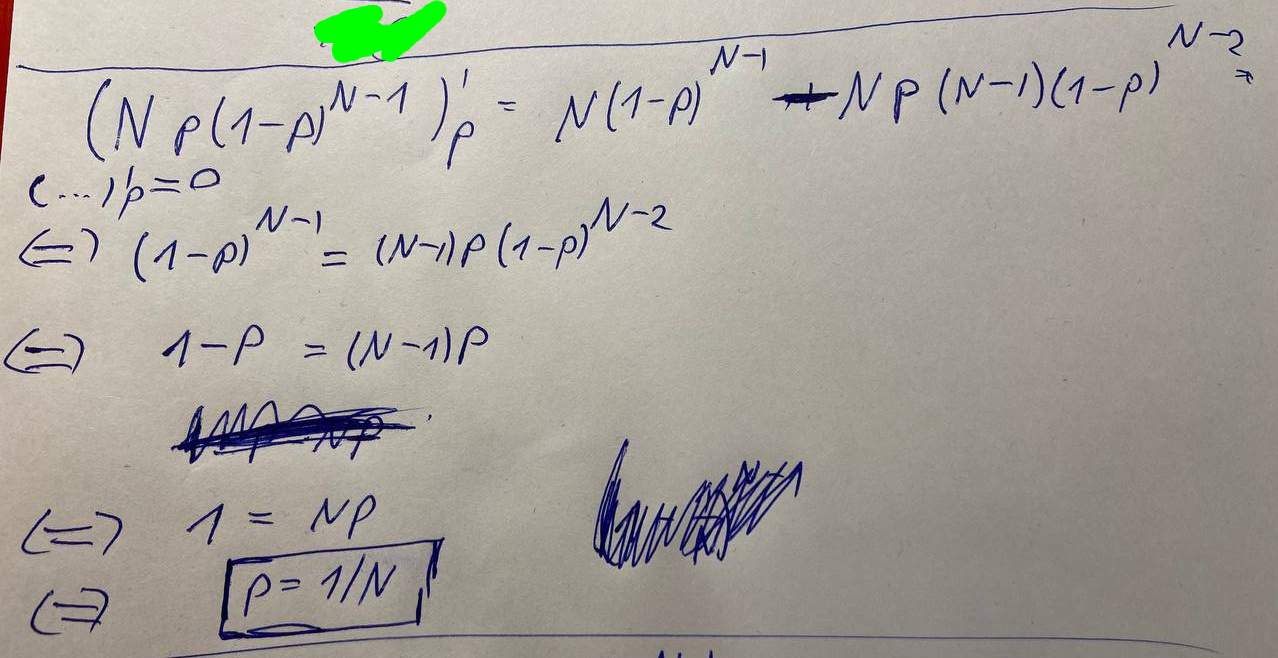 (Np(1-p)^{N-1})'_p = N(1-p)^{N-1} - Np(N-1)(1-p)^{N-2} =
(...)'_p = 0
(=) (1-p)^{N-1} = (N-1)p(1-p)^{N-2}
(=) 1-p = (N-1)p
(=) 1 = Np
(=) p = 1/N